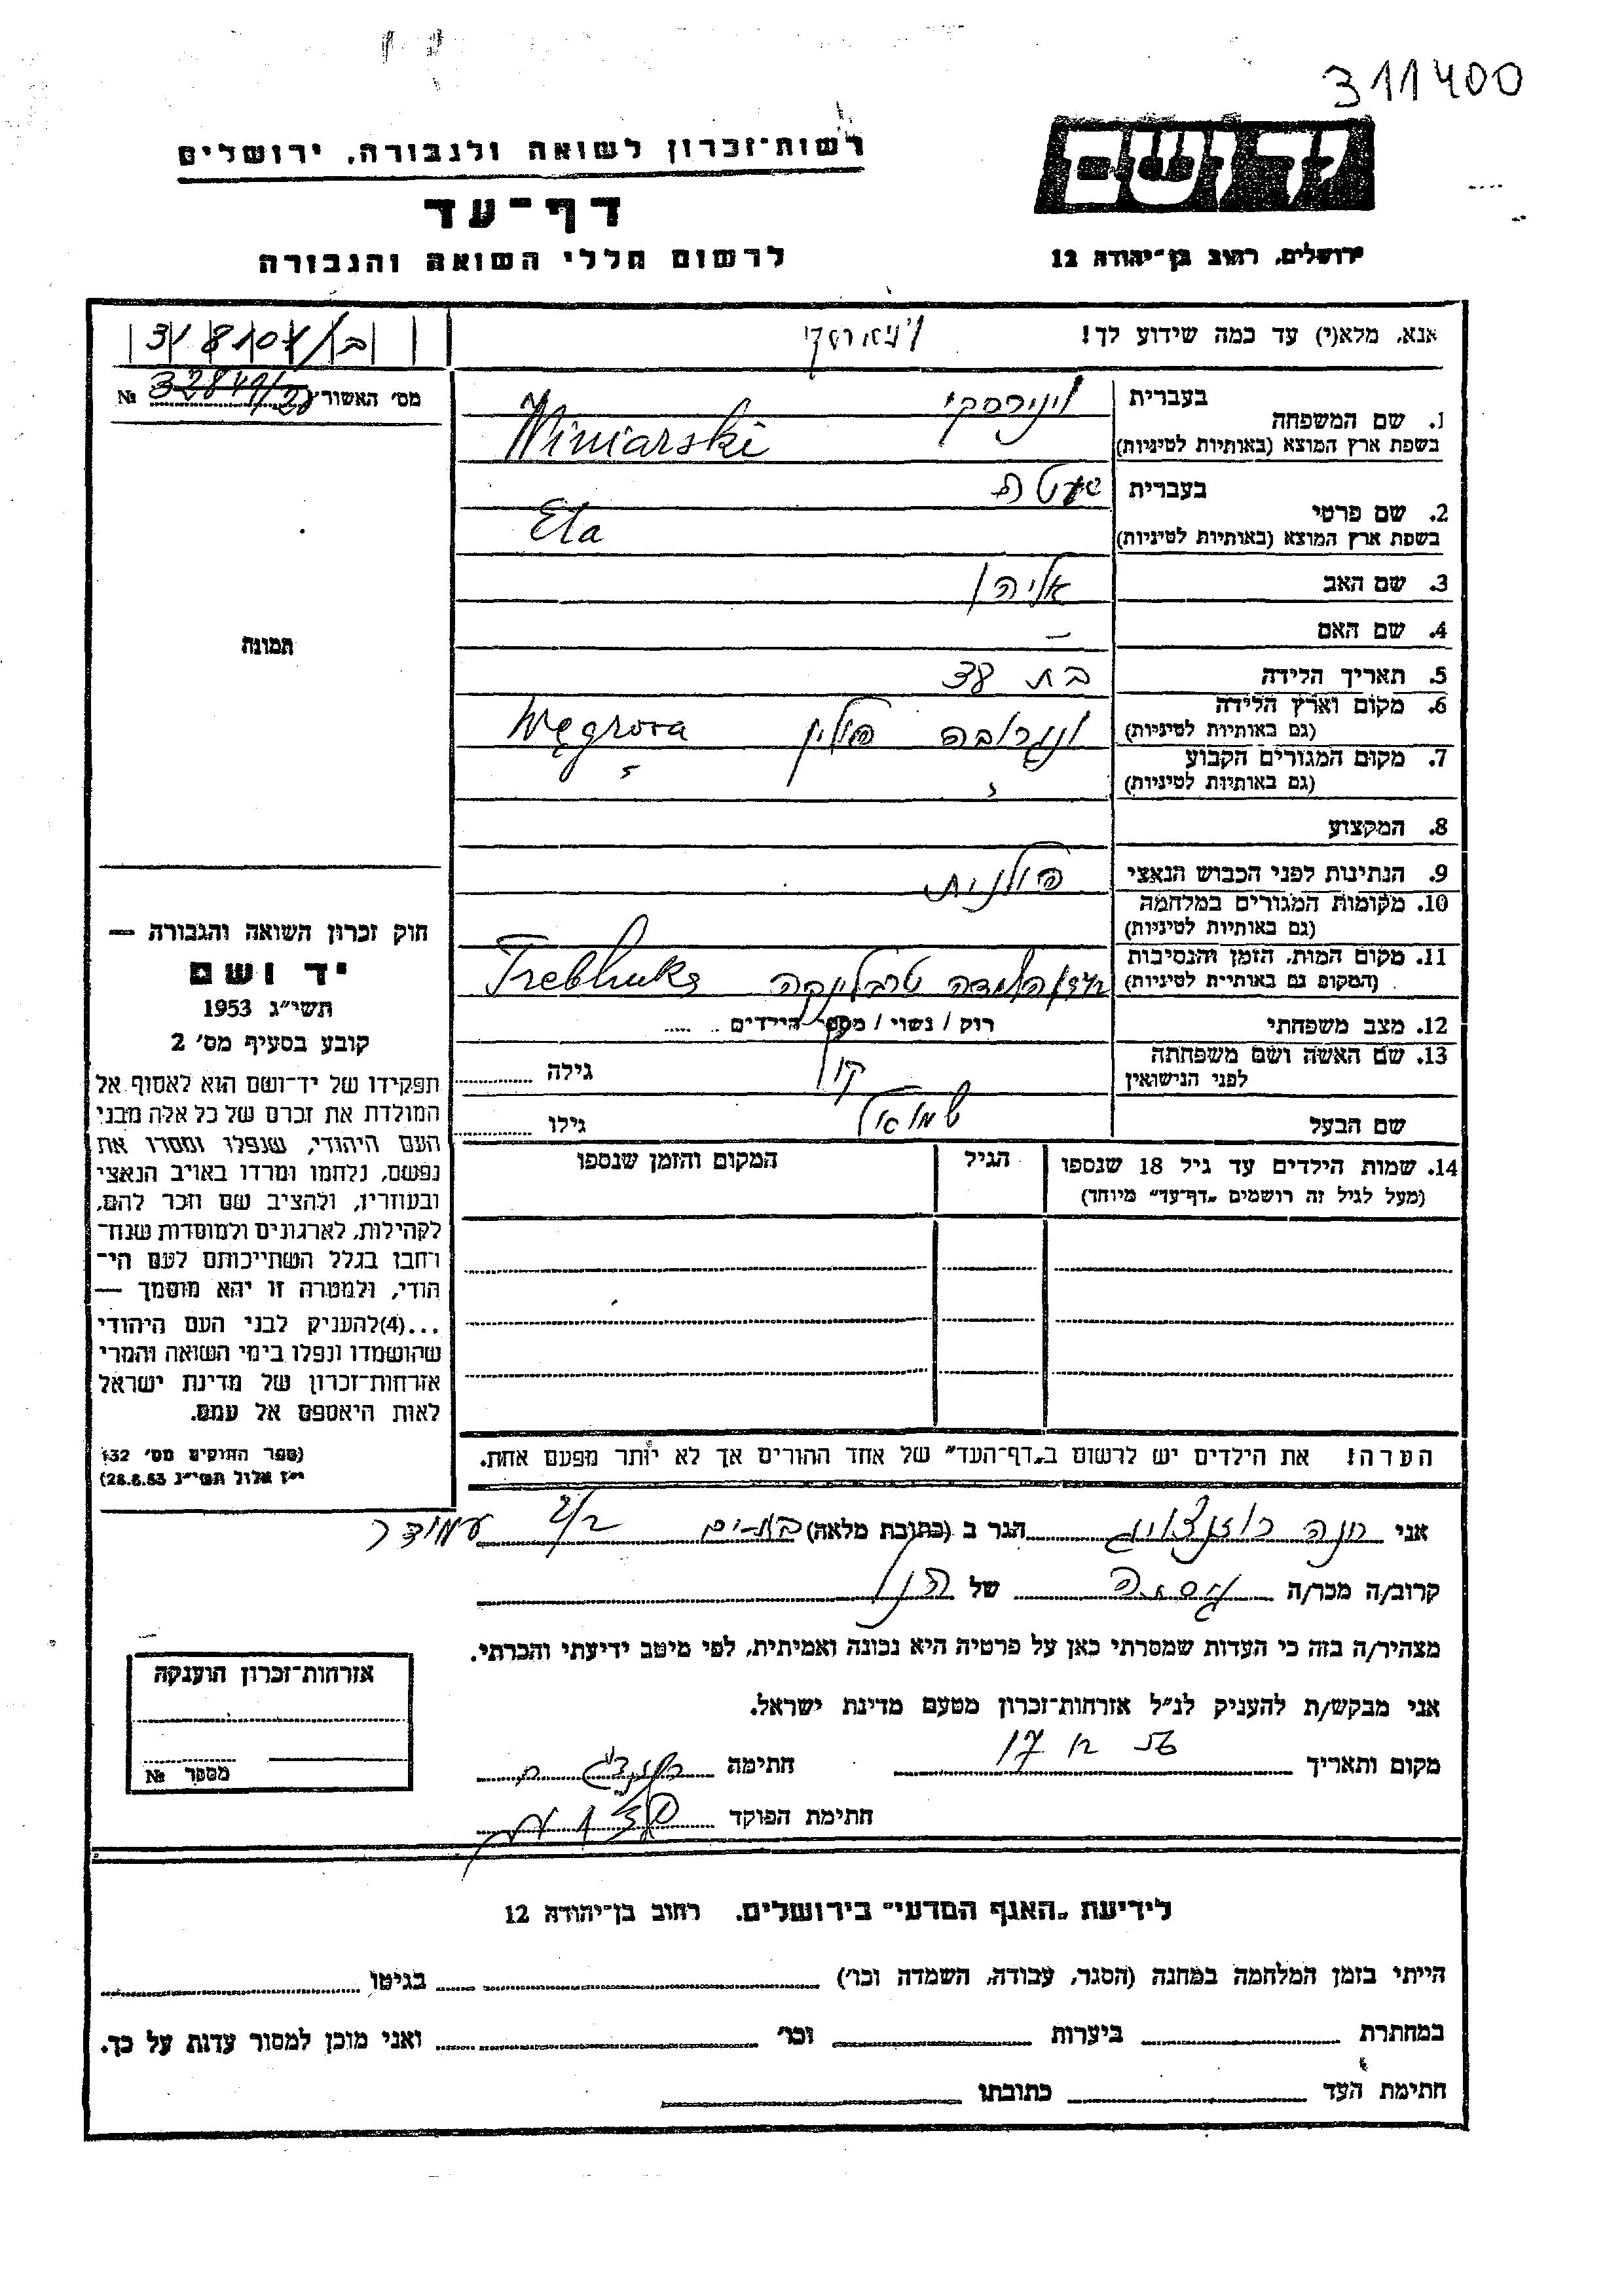 311400
יד ושם
ירושלים, רחוב בן־יהודה 12
רשות־זכרון לשואה ולגבורה, ירושלים
דף־עד
לרשום חללי השואה והגבורה
אנא, מלא(י) עד כמה שידוע לך!
מס' האשור № 32849/
1. שם המשפחה
בעברית
בשפת ארץ המוצא (באותיות לטיניות) Winiarski
2. שם פרטי
בעברית
בשפת ארץ המוצא (באותיות לטיניות) Eta
3. שם האב אליהו
4. שם האם –
5. תאריך הלידה בת 38
6. מקום וארץ הלידה
(גם באותיות לטיניות) ונגרובה פולין Węgrova
7. מקום המגורים הקבוע
(גם באותיות לטיניות)
8. המקצוע
9. הנתינות לפני הכבוש הנאצי פולנית
10. מקומות המגורים במלחמה
(גם באותיות לטיניות)
11. מקום המות, הזמן והנסיבות
(המקום גם באותיות לטיניות) טרבלינקה
12. מצב משפחתי רוק / נשוי / מספר הילדים
13. שם האשה ושם משפחתה
לפני הנישואין גילה
שם הבעל שמואל גילו
14. שמות הילדים עד גיל 18 שנספו
(מעל לגיל זה רושמים "דף־עד" מיוחד)
הגיל
המקום והזמן שנספו
הערה! את הילדים יש לרשום ב"דף־העד" של אחד ההורים אך לא יותר מפעם אחת.
תמונה
חוק זכרון השואה והגבורה —
יד ושם
תשי"ג 1953
קובע בסעיף מס' 2
תפקידו של יד־ושם הוא לאסוף אל
המולדת את זכרם של כל אלה מבני
העם היהודי, שנפלו ומסרו את
נפשם, נלחמו ומרדו באויב הנאצי
ובעוזריו, ולהציב שם וזכר להם,
לקהילות, לארגונים ולמוסדות שנח־
רחבו בגלל השתייכותם לעם הי־
הודי, ולמטרה זו יהא מוסמך —
...(4)להעניק לבני העם היהודי
שהושמדו ונפלו בימי השואה והמרי
אזרחות־זכרון של מדינת ישראל
לאות היאספם אל עמם.
(ספר החוקים מס' 132
י"ז אלול תשי"ג 28.8.53)
אני חנה הגר ב (כתובת מלאה)
קרוב/ה מכר/ה של
מצהיר/ה בזה כי העדות שמסרתי כאן על פרטיה היא נכונה ואמיתית, לפי מיטב ידיעתי והכרתי.
אני מבקש/ת להעניק לנ"ל אזרחות־זכרון מטעם מדינת ישראל.
מקום ותאריך חתימה
חתימת הפוקד
אזרחות־זכרון הוענקה
מספר №
לידיעת "האגף המדעי" בירושלים. רחוב בן־יהודה 12
הייתי בזמן המלחמה במחנה (הסגר, עבודה, השמדה וכו') בגיטו
במחתרת ביערות וכו' ואני מוכן למסור עדות על כך.
חתימת העד כתובתו